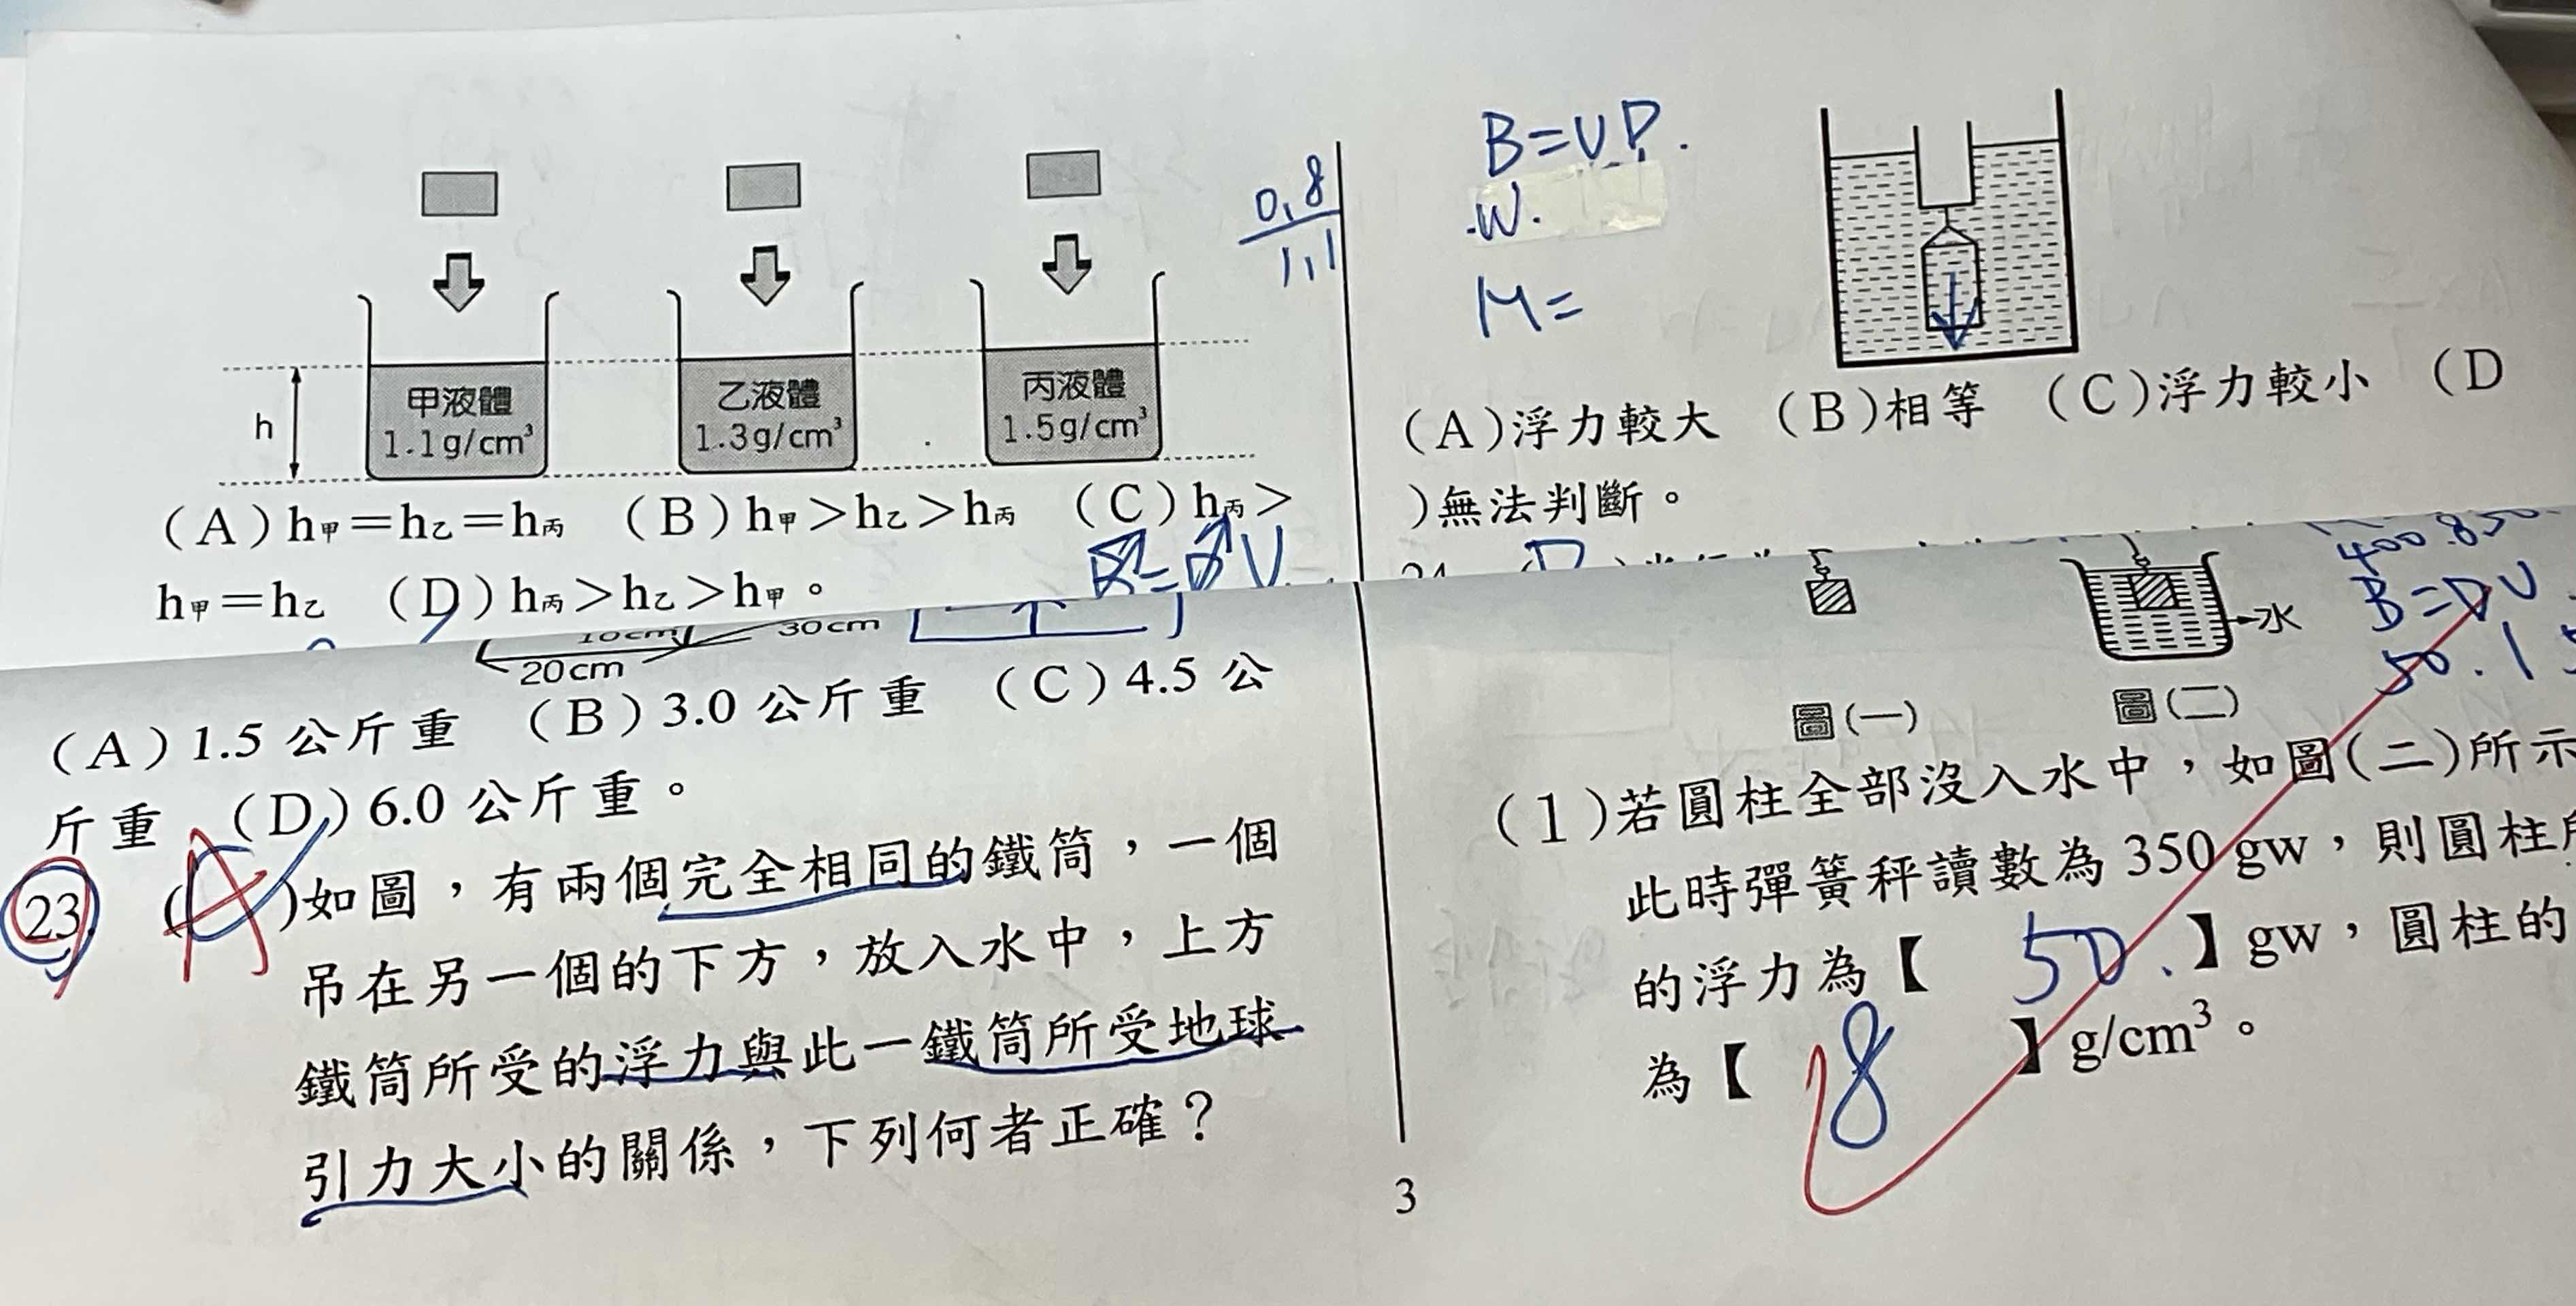 甲液體
1.1g/cm³
乙液體
1.3g/cm³
丙液體
1.5g/cm³
h
0.8
1.1
(A)h甲=h乙=h丙 (B)h甲>h乙>h丙 (C)h丙>
h甲=h乙 (D)h丙>h乙>h甲。
10cm
30cm
20cm
(A)1.5 公斤重 (B)3.0 公斤重 (C)4.5 公
斤重 (D)6.0 公斤重。
23. (A)如圖，有兩個完全相同的鐵筒，一個
吊在另一個的下方，放入水中，上方
鐵筒所受的浮力與此一鐵筒所受地球
引力大小的關係，下列何者正確？
B=VD.
W.
M=
(A)浮力較大 (B)相等 (C)浮力較小 (D
)無法判斷。
B=DV
50.1
水
圖(一)
圖(二)
(1)若圓柱全部沒入水中，如圖(二)所示
此時彈簧秤讀數為 350 gw，則圓柱所
的浮力為【 50. 】gw，圓柱的
為【 8 】g/cm³。
3